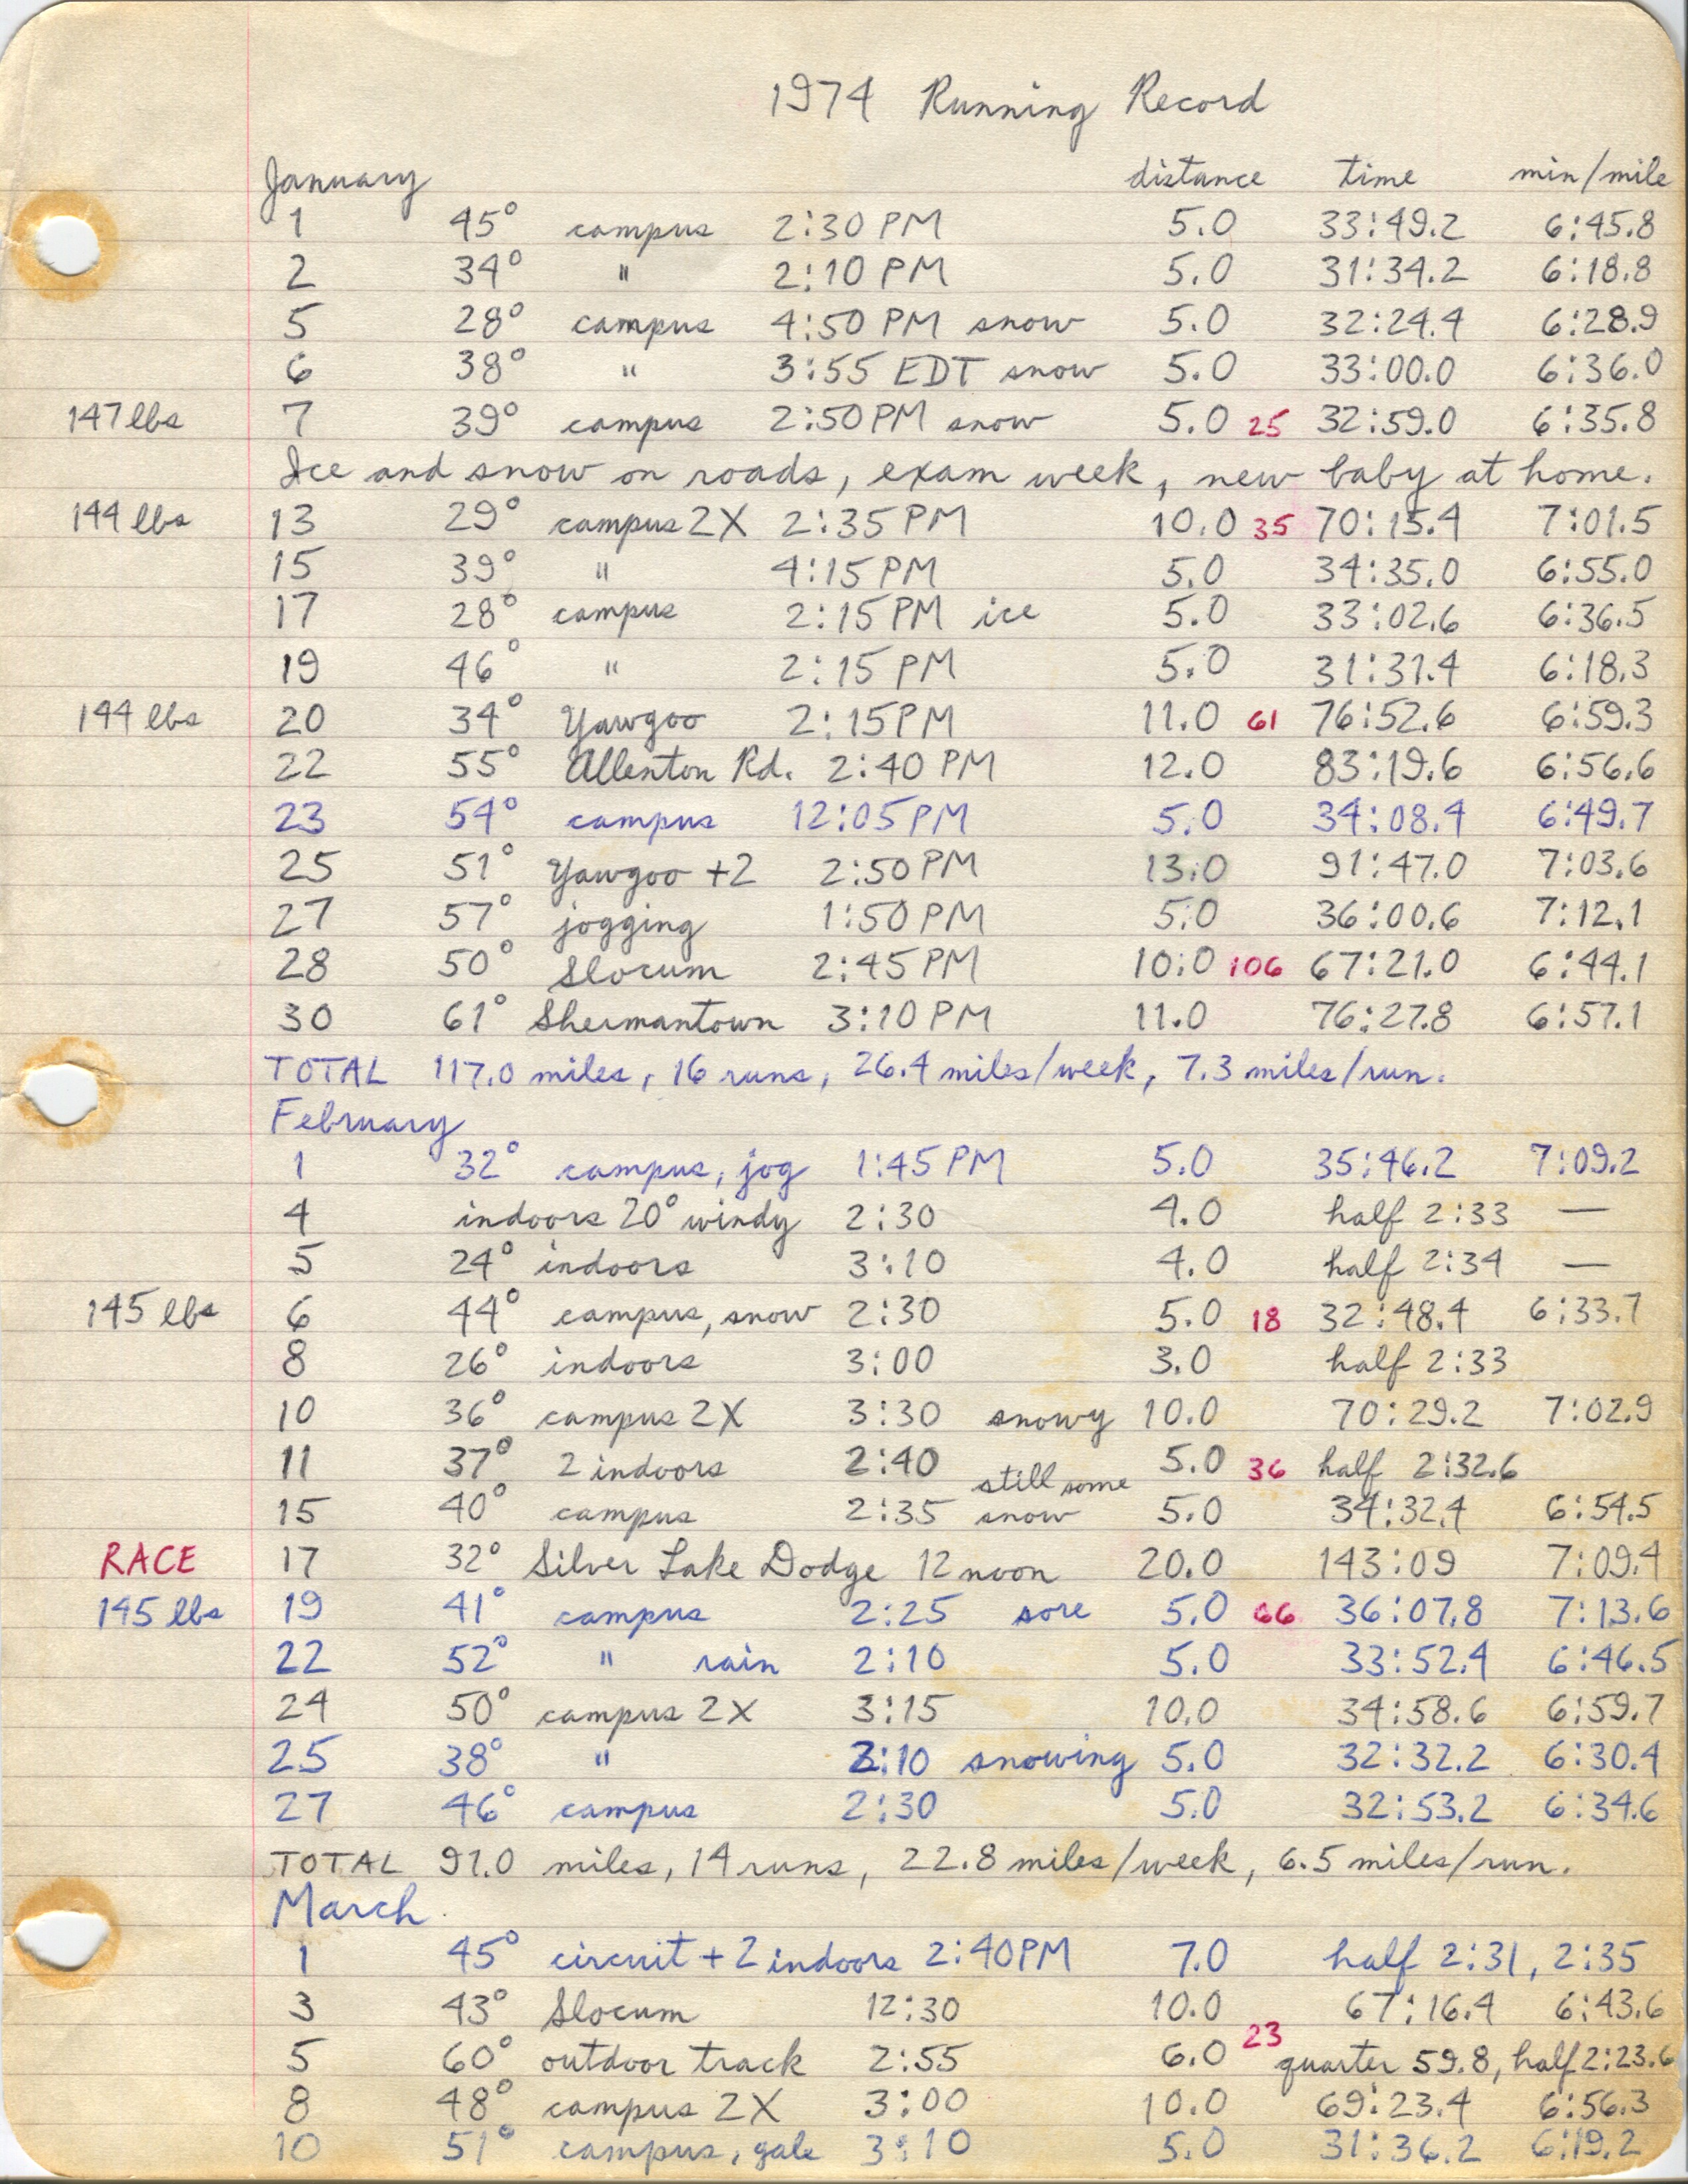 1974 Running Record
January distance time min/mile
1 45° campus 2:30 PM 5.0 33:49.2 6:45.8
2 34° " 2:10 PM 5.0 31:34.2 6:18.8
5 28° campus 4:50 PM snow 5.0 32:24.4 6:28.9
6 38° " 3:55 EDT snow 5.0 33:00.0 6:36.0
147 lbs 7 39° campus 2:50 PM snow 5.0 25 32:59.0 6:35.8
Ice and snow on roads, exam week, new baby at home.
144 lbs 13 29° campus 2X 2:35 PM 10.0 35 70:15.4 7:01.5
15 39° " 4:15 PM 5.0 34:35.0 6:55.0
17 28° campus 2:15 PM ice 5.0 33:02.6 6:36.5
19 46° " 2:15 PM 5.0 31:31.4 6:18.3
144 lbs 20 34° Yawgoo 2:15 PM 11.0 61 76:52.6 6:59.3
22 55° Allenton Rd. 2:40 PM 12.0 83:19.6 6:56.6
23 54° campus 12:05 PM 5.0 34:08.4 6:49.7
25 51° Yawgoo +2 2:50 PM 13.0 91:47.0 7:03.6
27 57° jogging 1:50 PM 5.0 36:00.6 7:12.1
28 50° Slocum 2:45 PM 10.0 106 67:21.0 6:44.1
30 61° Shermantown 3:10 PM 11.0 76:27.8 6:57.1
TOTAL 117.0 miles, 16 runs, 26.4 miles/week, 7.3 miles/run.
February
1 32° campus, jog 1:45 PM 5.0 35:46.2 7:09.2
4 indoors 20° windy 2:30 4.0 half 2:33 —
5 24° indoors 3:10 4.0 half 2:34 —
145 lbs 6 44° campus, snow 2:30 5.0 18 32:48.4 6:33.7
8 26° indoors 3:00 3.0 half 2:33
10 36° campus 2X 3:30 snowy 10.0 70:29.2 7:02.9
11 37° 2 indoors 2:40 5.0 36 half 2:32.6
15 40° campus 2:35 still some snow 5.0 34:32.4 6:54.5
RACE 17 32° Silver Lake Dodge 12 noon 20.0 143:09 7:09.4
145 lbs 19 41° campus 2:25 sore 5.0 66 36:07.8 7:13.6
22 52° " rain 2:10 5.0 33:52.4 6:46.5
24 50° campus 2X 3:15 10.0 34:58.6 6:59.7
25 38° " 2:10 snowing 5.0 32:32.2 6:30.4
27 46° campus 2:30 5.0 32:53.2 6:34.6
TOTAL 91.0 miles, 14 runs, 22.8 miles/week, 6.5 miles/run.
March
1 45° circuit + 2 indoors 2:40 PM 7.0 half 2:31, 2:35
3 43° Slocum 12:30 10.0 67:16.4 6:43.6
5 60° outdoor track 2:55 6.0 23 quarter 59.8, half 2:23.6
8 48° campus 2X 3:00 10.0 69:23.4 6:56.3
10 51° campus, gale 3:10 5.0 31:36.2 6:19.2